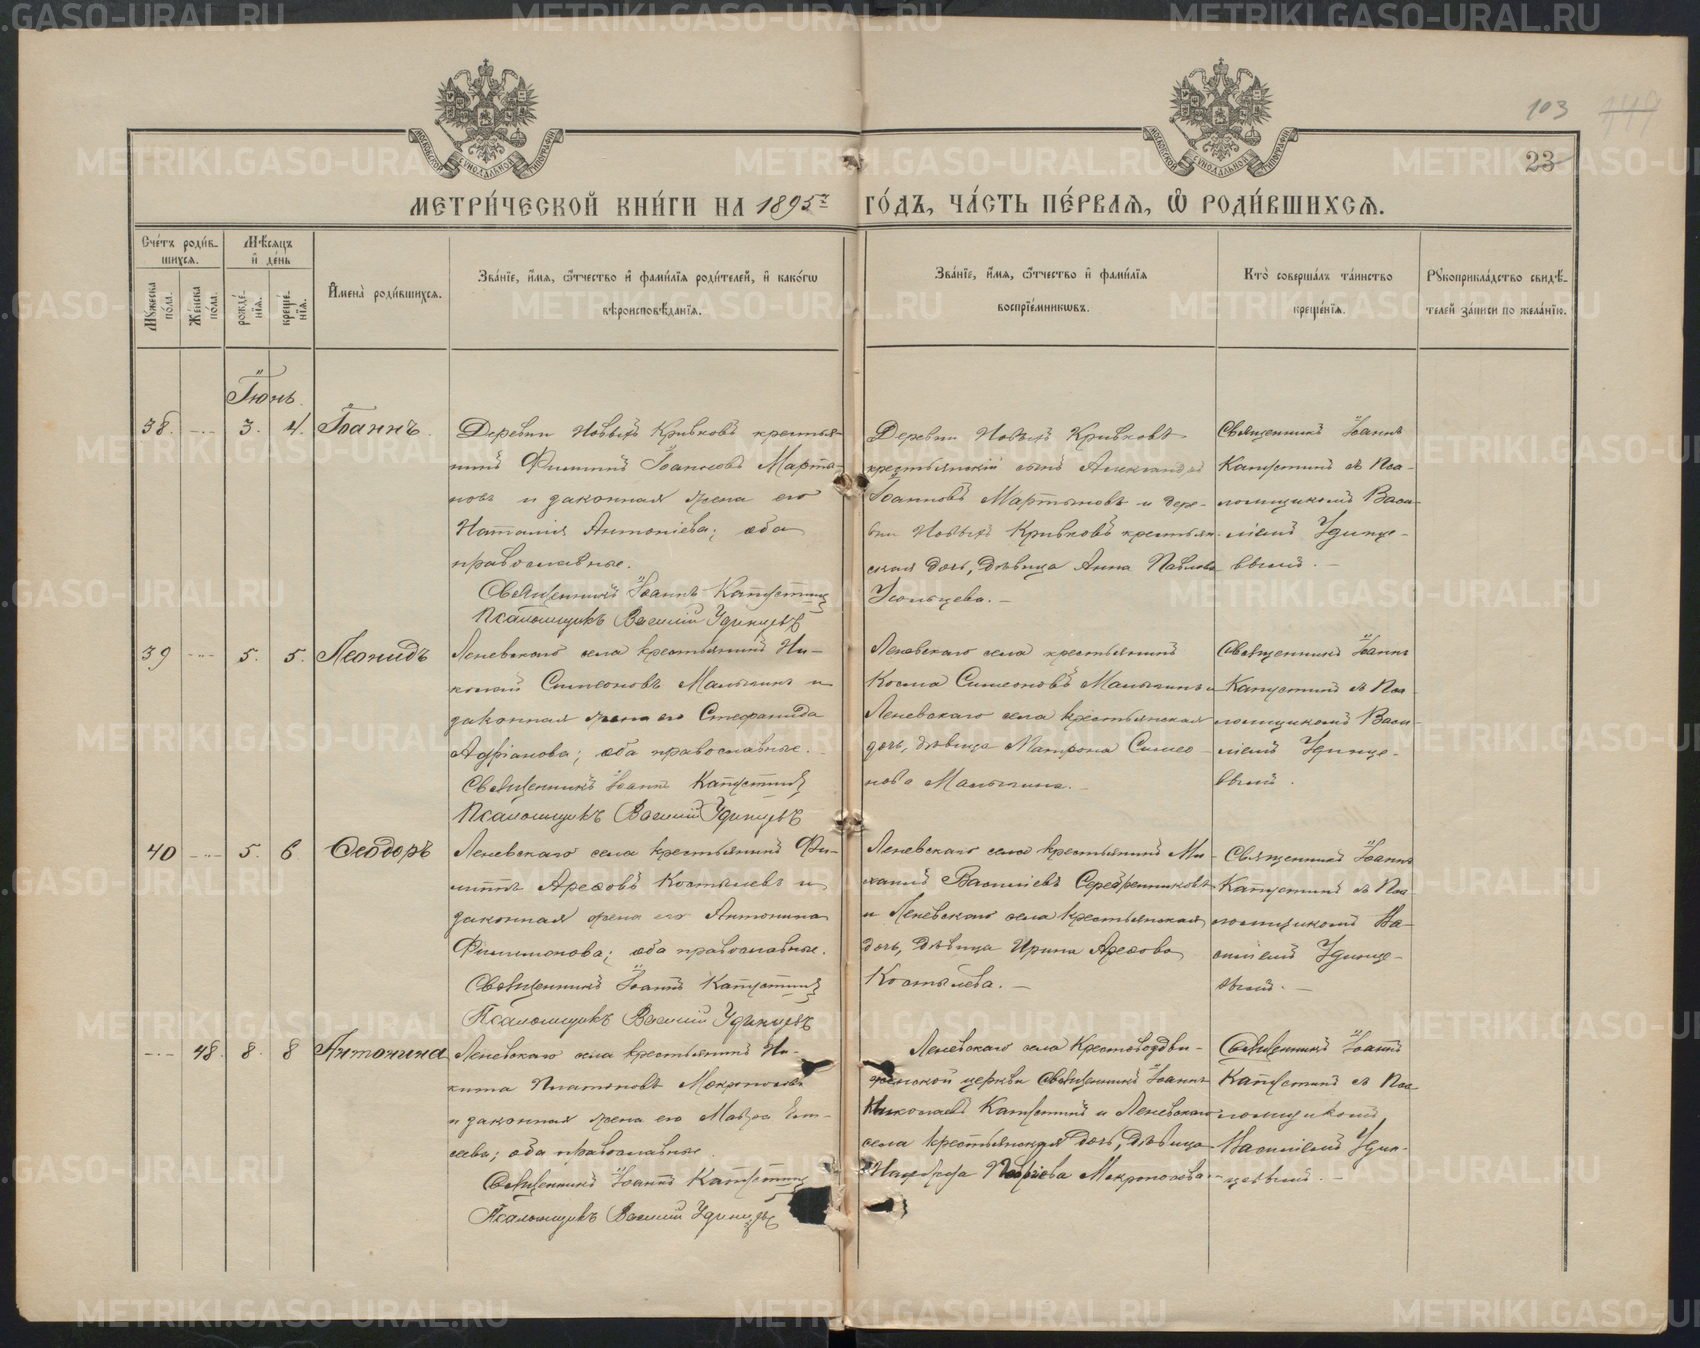 103
23
МЕТРИ́ЧЕСКОЙ КНИ́ГИ НА 1895 г. ГО́ДЪ, ЧА́СТЬ ПЕ́РВАЯ, Ѡ РОДИ́ВШИХСЯ.
Сче́тъ роди́в-
шихся.
Мѣ́сяцъ
и де́нь
Мꙋ́жеска по́ла.
Же́нска по́ла.
рожде́-
нїя.
креще́-
нїя.
И҆мена̀ роди́вшихся.
Зва́нїе, и҆́мя, ѻ҆́тчество и҆ фами́лїя роди́телей, и҆ како́гѡ
вѣроисповѣ́данїя.
Зва́нїе, и҆́мя, ѻ҆́тчество и҆ фами́лїя
воспрїе́мникѡвъ.
Кто̀ соверша́лъ та́инство
креще́нїя.
Рꙋкоприкла́дство свидѣ́-
телей за́писи по жела́нїю.
Іюнь.
38. 3. 4. Іоаннъ.
Деревни Новыхъ Кривковъ крестья-
нинъ Филиппъ Іоанновъ Марты-
новъ и законная жена его
Наталія Антоніева; оба
православные.
Священникъ Іоаннъ Капустинъ
Псаломщикъ Василій Удинцевъ
Деревни Новыхъ Кривковъ
крестьянскій сынъ Александръ
Іоанновъ Мартыновъ и дере-
вни Новыхъ Кривковъ крестьян-
ская дочь, дѣвица Анна Павлова
Усольцева.
Священникъ Іоаннъ
Капустинъ съ Пса-
ломщикомъ Васи-
ліемъ Удинце-
вымъ.
39 5. 5. Леонидъ
Леневскаго села крестьянинъ Ни-
колай Симеоновъ Малыгинъ и
законная жена его Стефанида
Адріанова; оба православные.
Священникъ Іоаннъ Капустинъ
Псаломщикъ Василій Удинцевъ
Леневскаго села крестьянинъ
Косма Симеоновъ Малыгинъ и
Леневскаго села крестьянская
дочь, дѣвица Матрона Симео-
нова Малыгина.
Священникъ Іоаннъ
Капустинъ съ Пса-
ломщикомъ Васи-
ліемъ Удинце-
вымъ.
40 5. 6. Ѳеодоръ
Леневскаго села крестьянинъ Фи-
липпъ Арефовъ Костылевъ и
законная жена его Антонина
Филимонова; оба православные.
Священникъ Іоаннъ Капустинъ
Псаломщикъ Василій Удинцевъ
Леневскаго села крестьянинъ Ми-
хаилъ Василіевъ Серебренниковъ
и Леневскаго села крестьянская
дочь, дѣвица Ирина Арефова
Костылева.
Священникъ Іоаннъ
Капустинъ съ Пса-
ломщикомъ Ва-
силіемъ Удинце-
вымъ.
48. 8. 8 Антонина
Леневскаго села крестьянинъ Ни-
кита Платоновъ Мокроносовъ
и законная жена его Мавра
оба православные.
Священникъ Іоаннъ Капустинъ
Псаломщикъ Василій Удинцевъ
Леневскаго села Крестовоздви-
женской церкви Священникъ Іоаннъ
Николаевъ Капустинъ и Леневскаго
села крестьянская дочь, дѣвица
Мокроносова.
Священникъ Іоаннъ
Капустинъ съ Пса-
ломщикомъ
Василіемъ Удин-
цевымъ.
METRIKI.GASO-URAL.RU